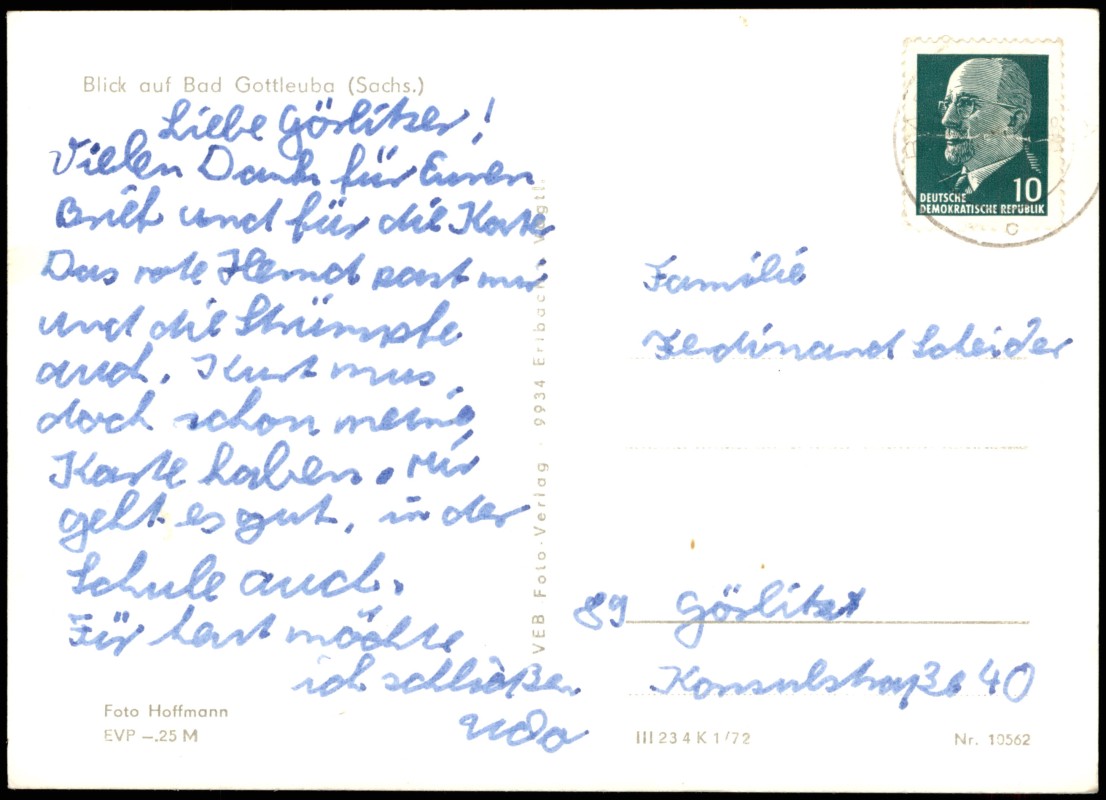 Blick auf Bad Gottleuba (Sachs.)
Liebe Görlitzer!
Vielen Dank für Euren
Brief und für die Karte
Das rote Hemd past mir
und die Strümpfe
auch. Kurt mus
doch schon meine
Karte haben. Mir
geht es gut, in der
Schule auch.
Für heut möchte
ich schließen
Udo
Foto Hoffmann
EVP –.25 M
VEB Foto-Verlag · 9934 Erlbach Vogtl.
DEUTSCHE
DEMOKRATISCHE REPUBLIK
10
c
Familie
Ferdinand Scleider
89 Görlitz
Konsulstraße 40
III 23 4 K 1/72
Nr. 10562